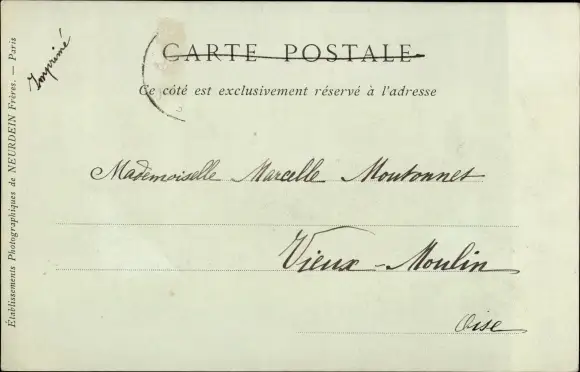 Imprimé
CARTE POSTALE
Ce côté est exclusivement réservé à l'adresse
Mademoiselle Marcelle Moutonnet
Vieux-Moulin
Oise
Établissements Photographiques de NEURDEIN Frères. — Paris